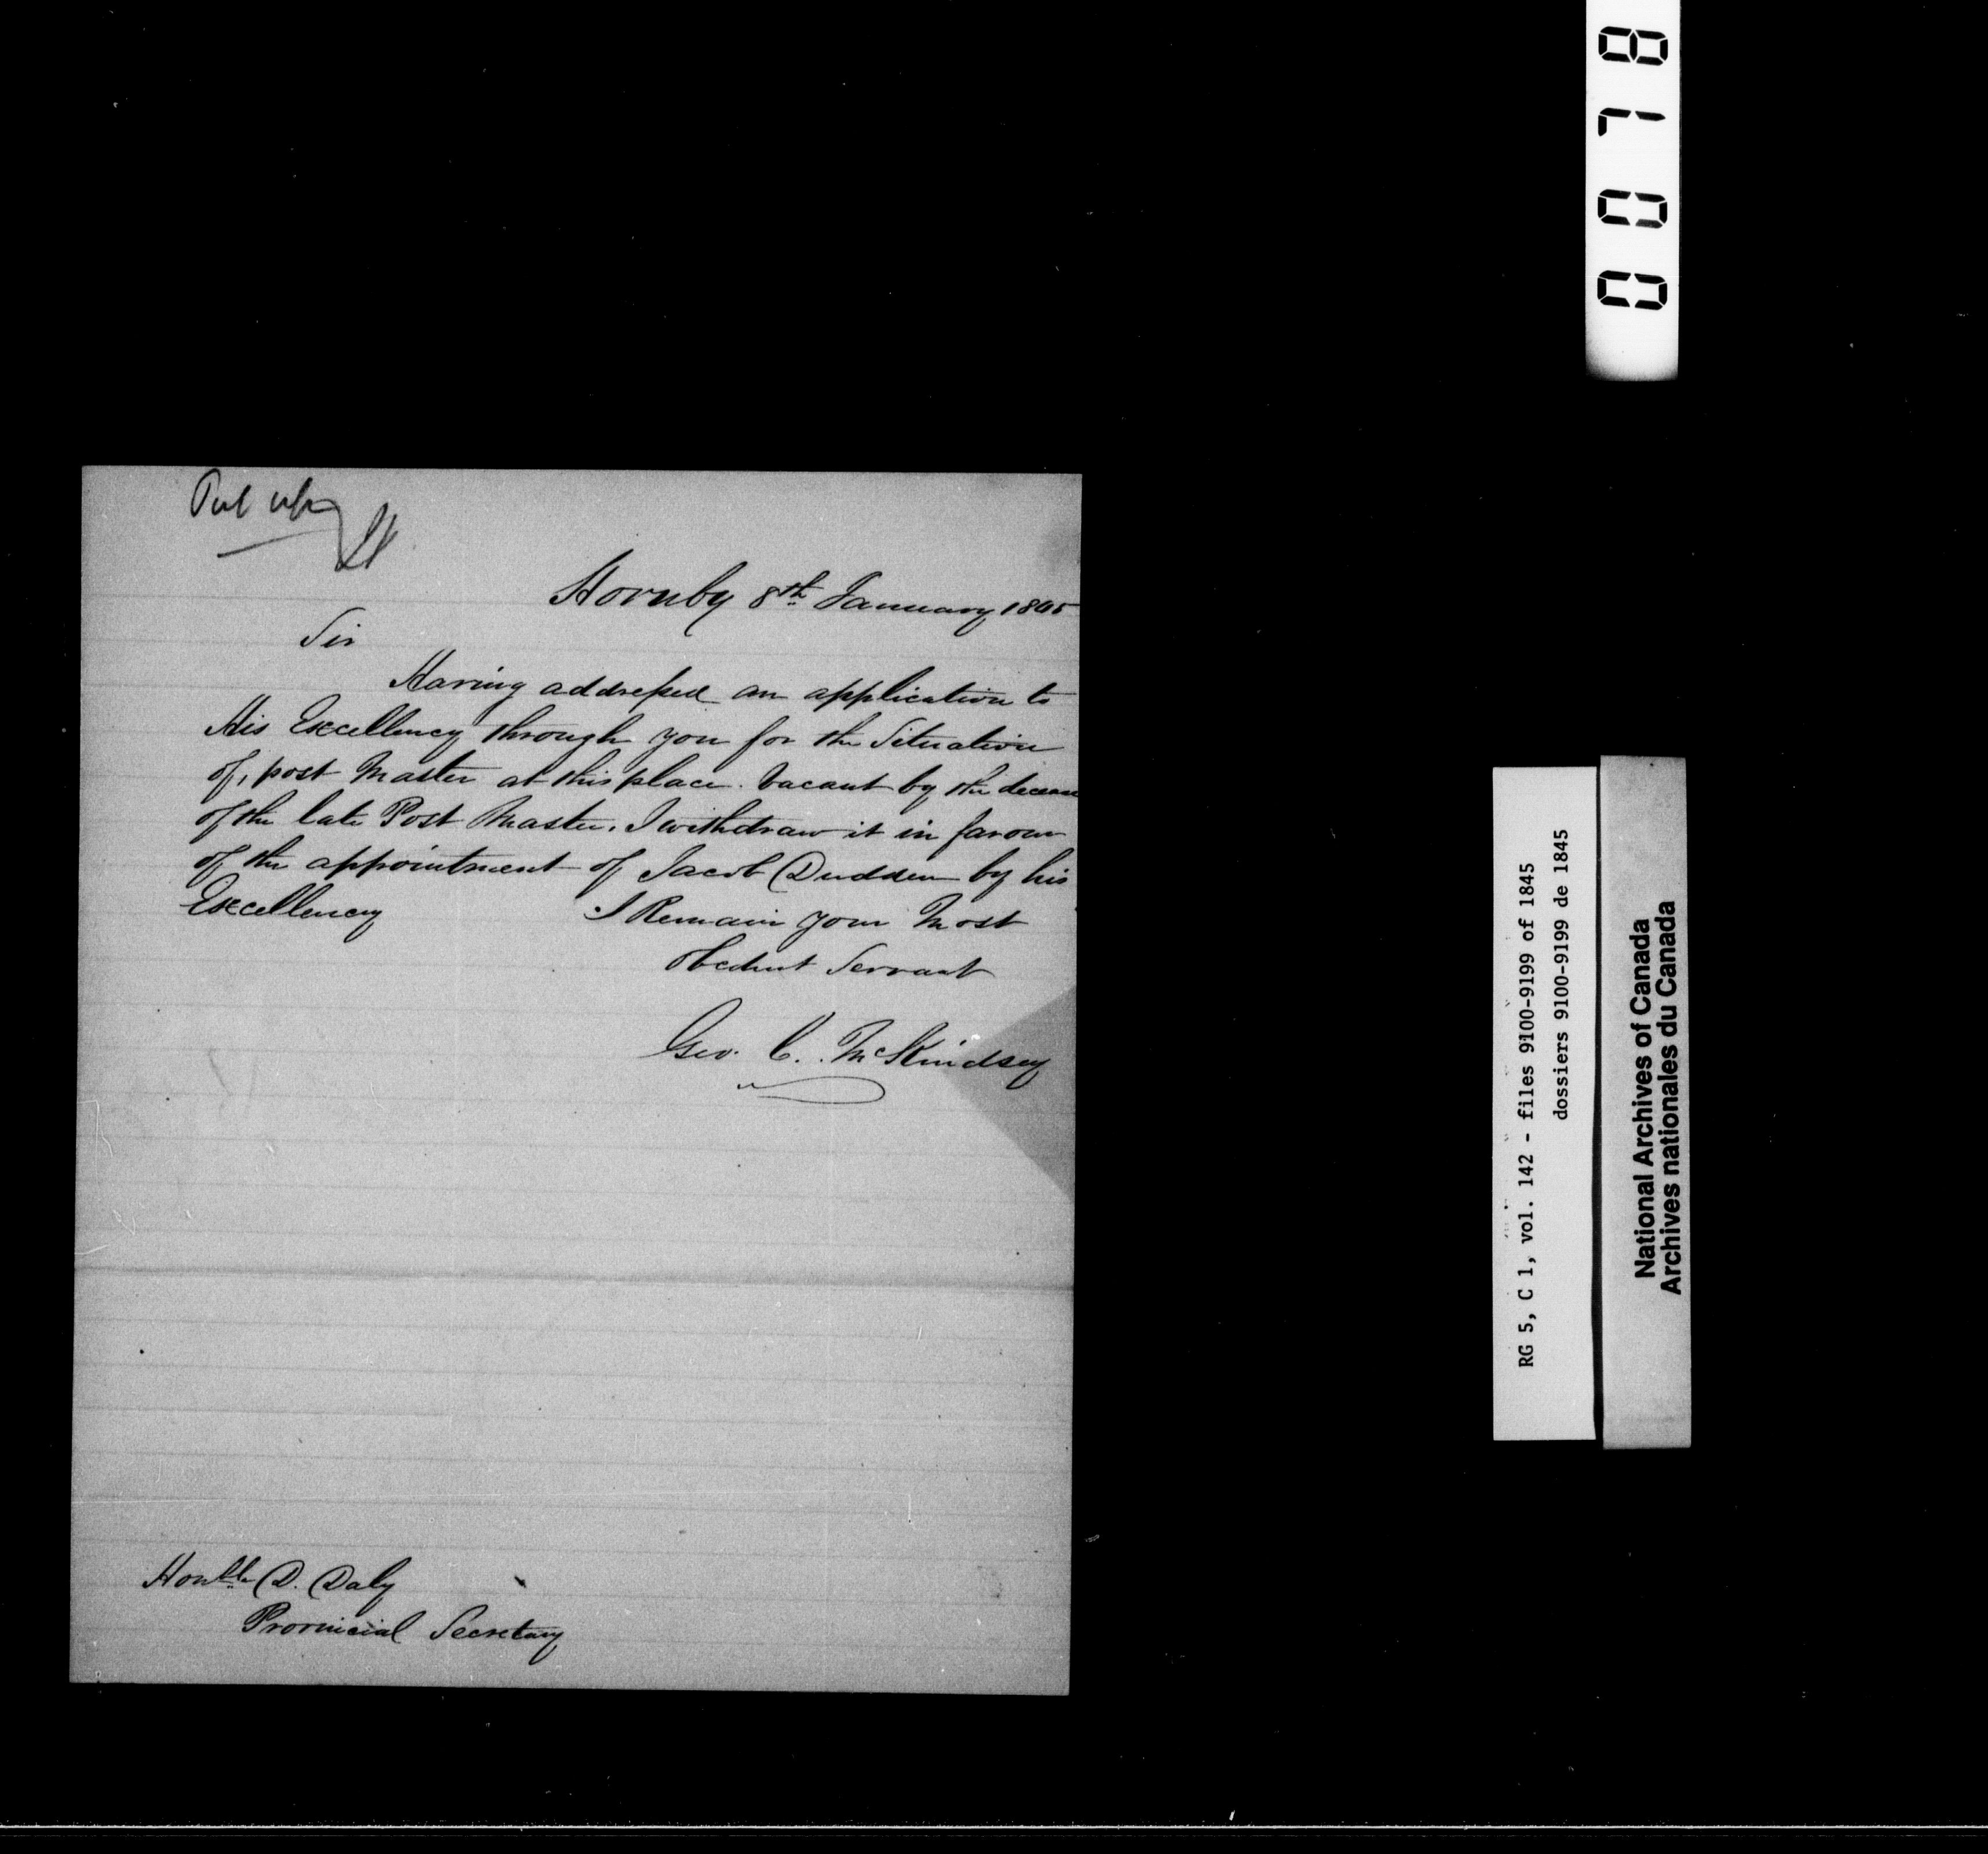 Put up
Hornby 8th January 1845
Sir
Having addressed an application to
His Excellency through you for the Situation
of, post Master at this place. Vacant by the decease
of the late Post Master. I withdraw it in favour
of the appointment of Jacob Dudden by his
Excellency I Remain your Most
obedient Servant
Geo. C. McKindsey
Honble D. Daly
Provincial Secretary
0078
RG 5, C 1, vol. 142 - files 9100-9199 of 1845
dossiers 9100-9199 de 1845
National Archives of Canada
Archives nationales du Canada